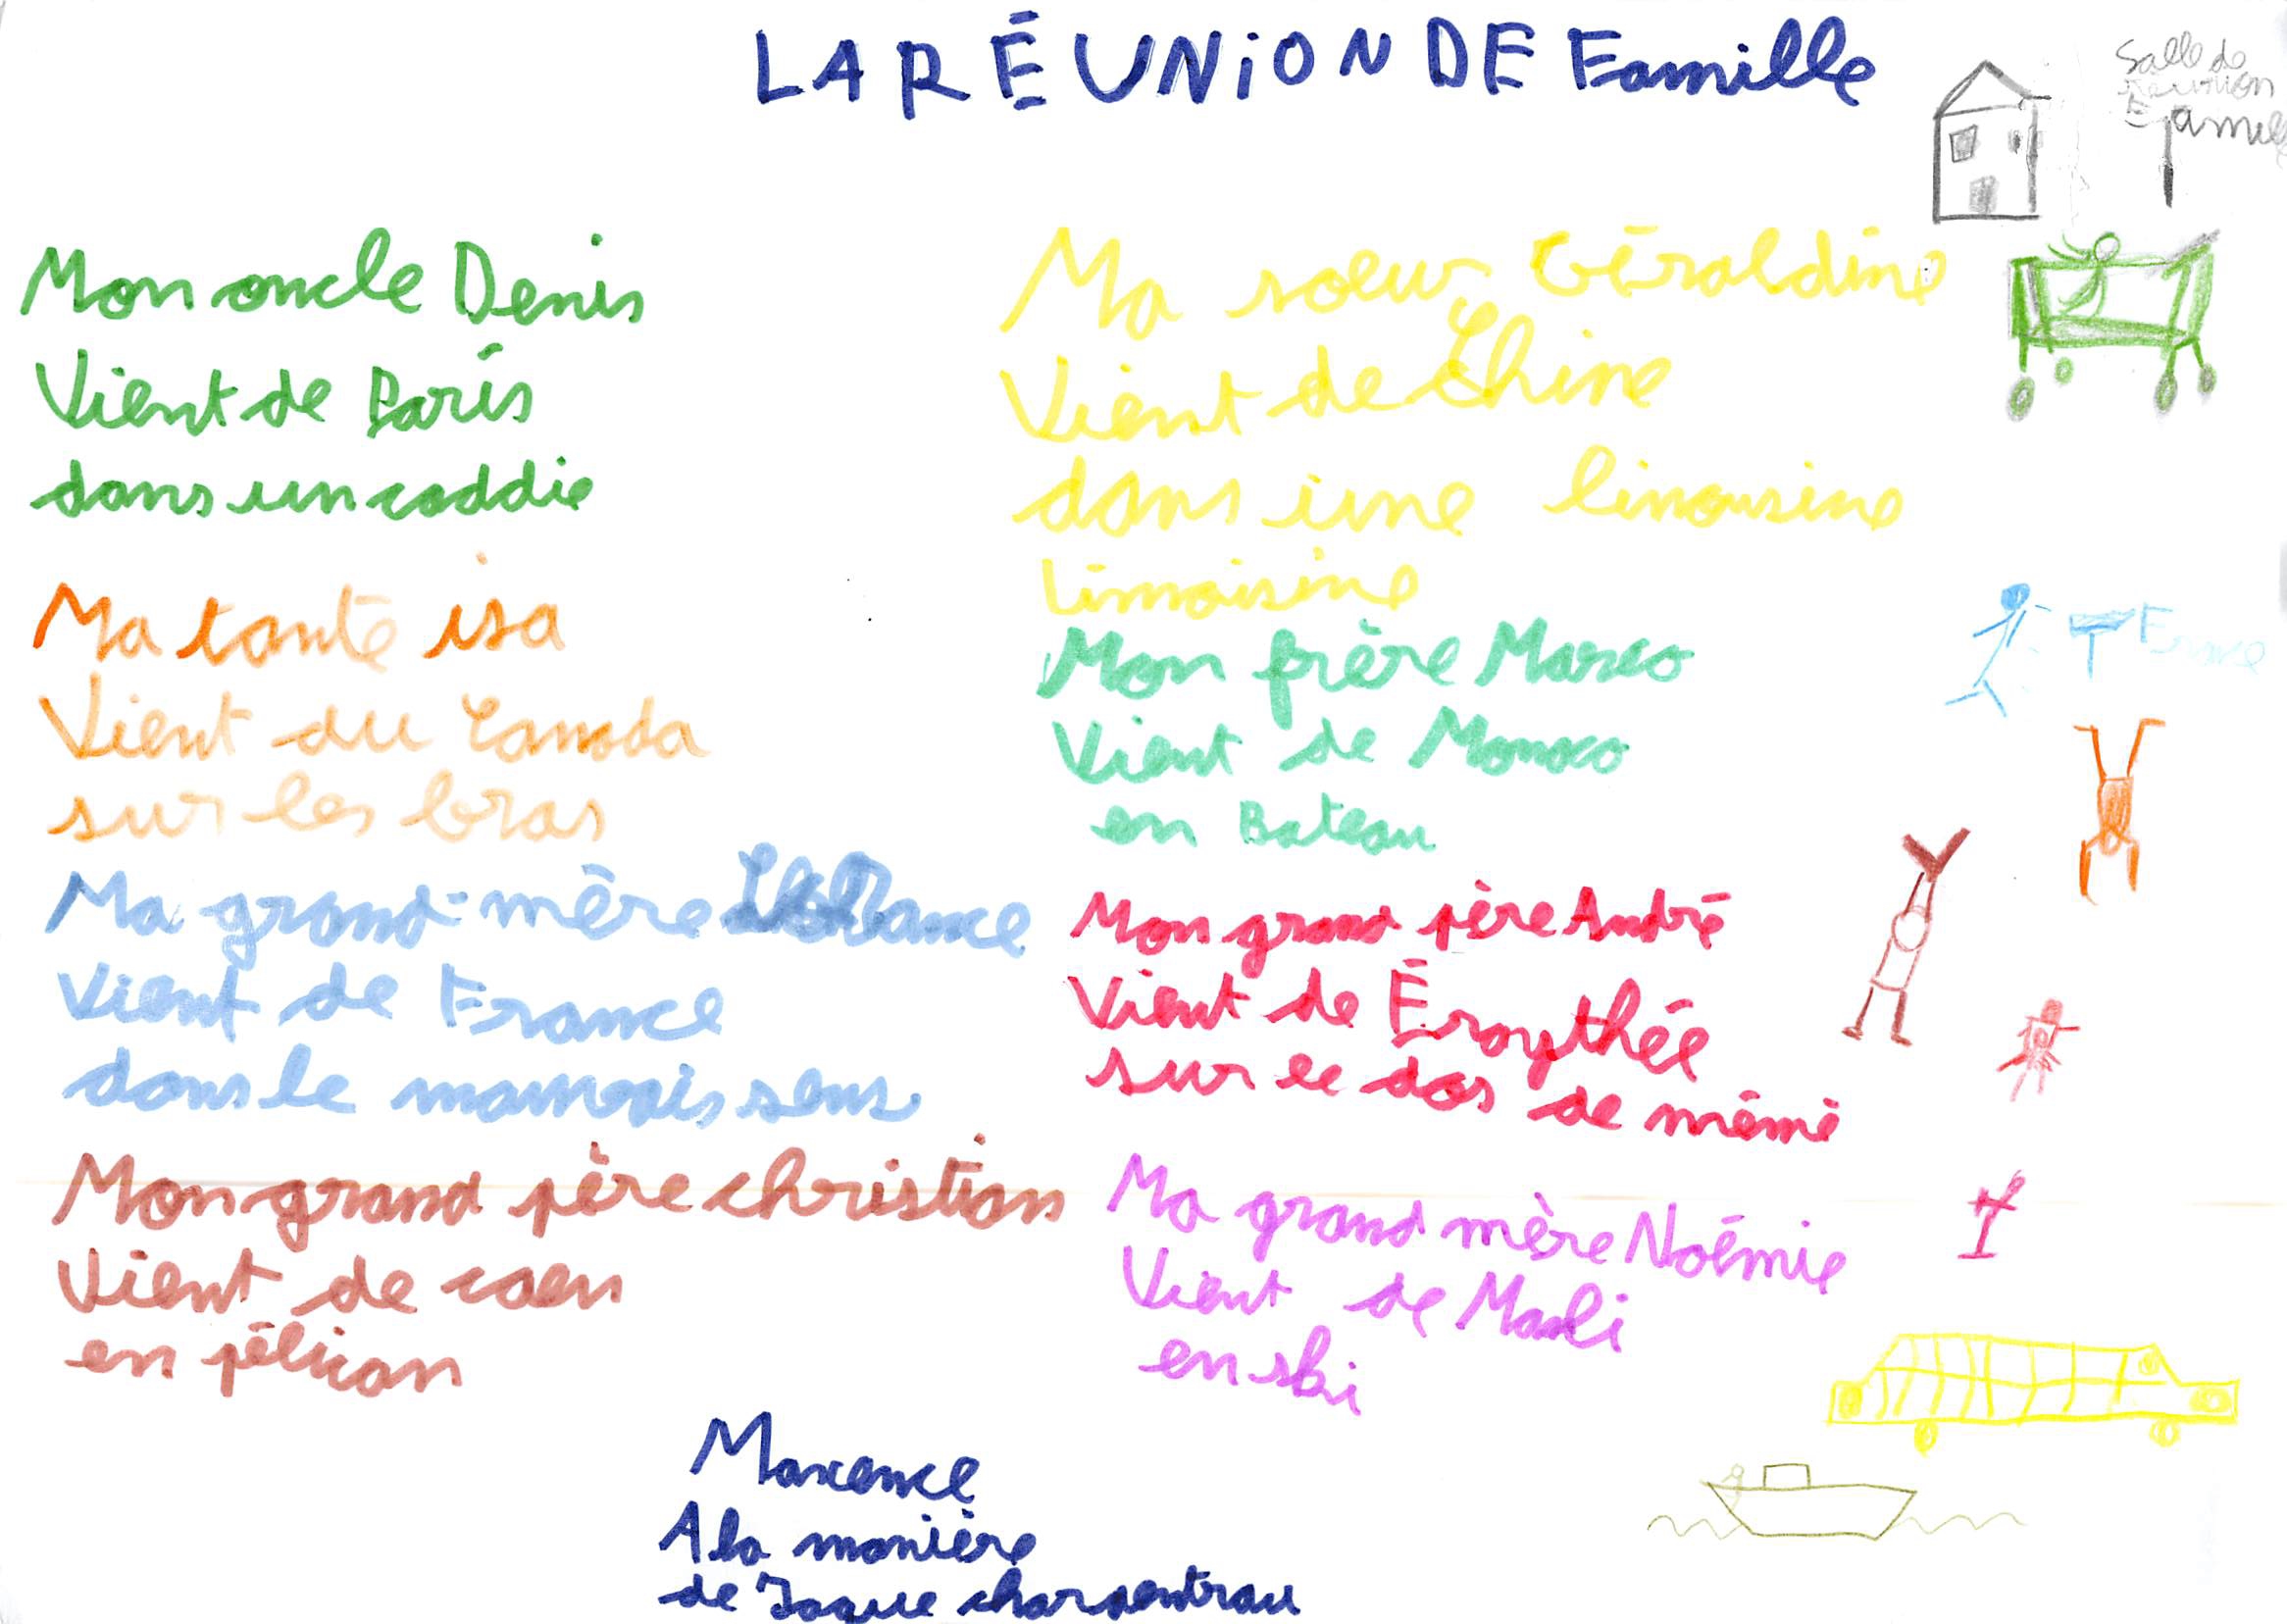 LA RÉUNiON DE Famille
Salle de
réunion
Famille
Mon oncle Denis
Vient de Paris
dans un caddie
Ma tante isa
Vient du Canada
sur les bras
Ma grand-mère
Vient de France
dans le mauvais sens
Mon grand père christian
Vient de caen
en pélican
Ma sœur Géraldine
Vient de Chine
dans une limousine
Limousine
Mon frère Marco
Vient de Monaco
en Bateau
Mon grand père André
Vient de
sur le dos de mémé
Ma grand mère Noémie
Vient de Mali
en ski
France
Maxence
A la manière
de Jaque charpentrau